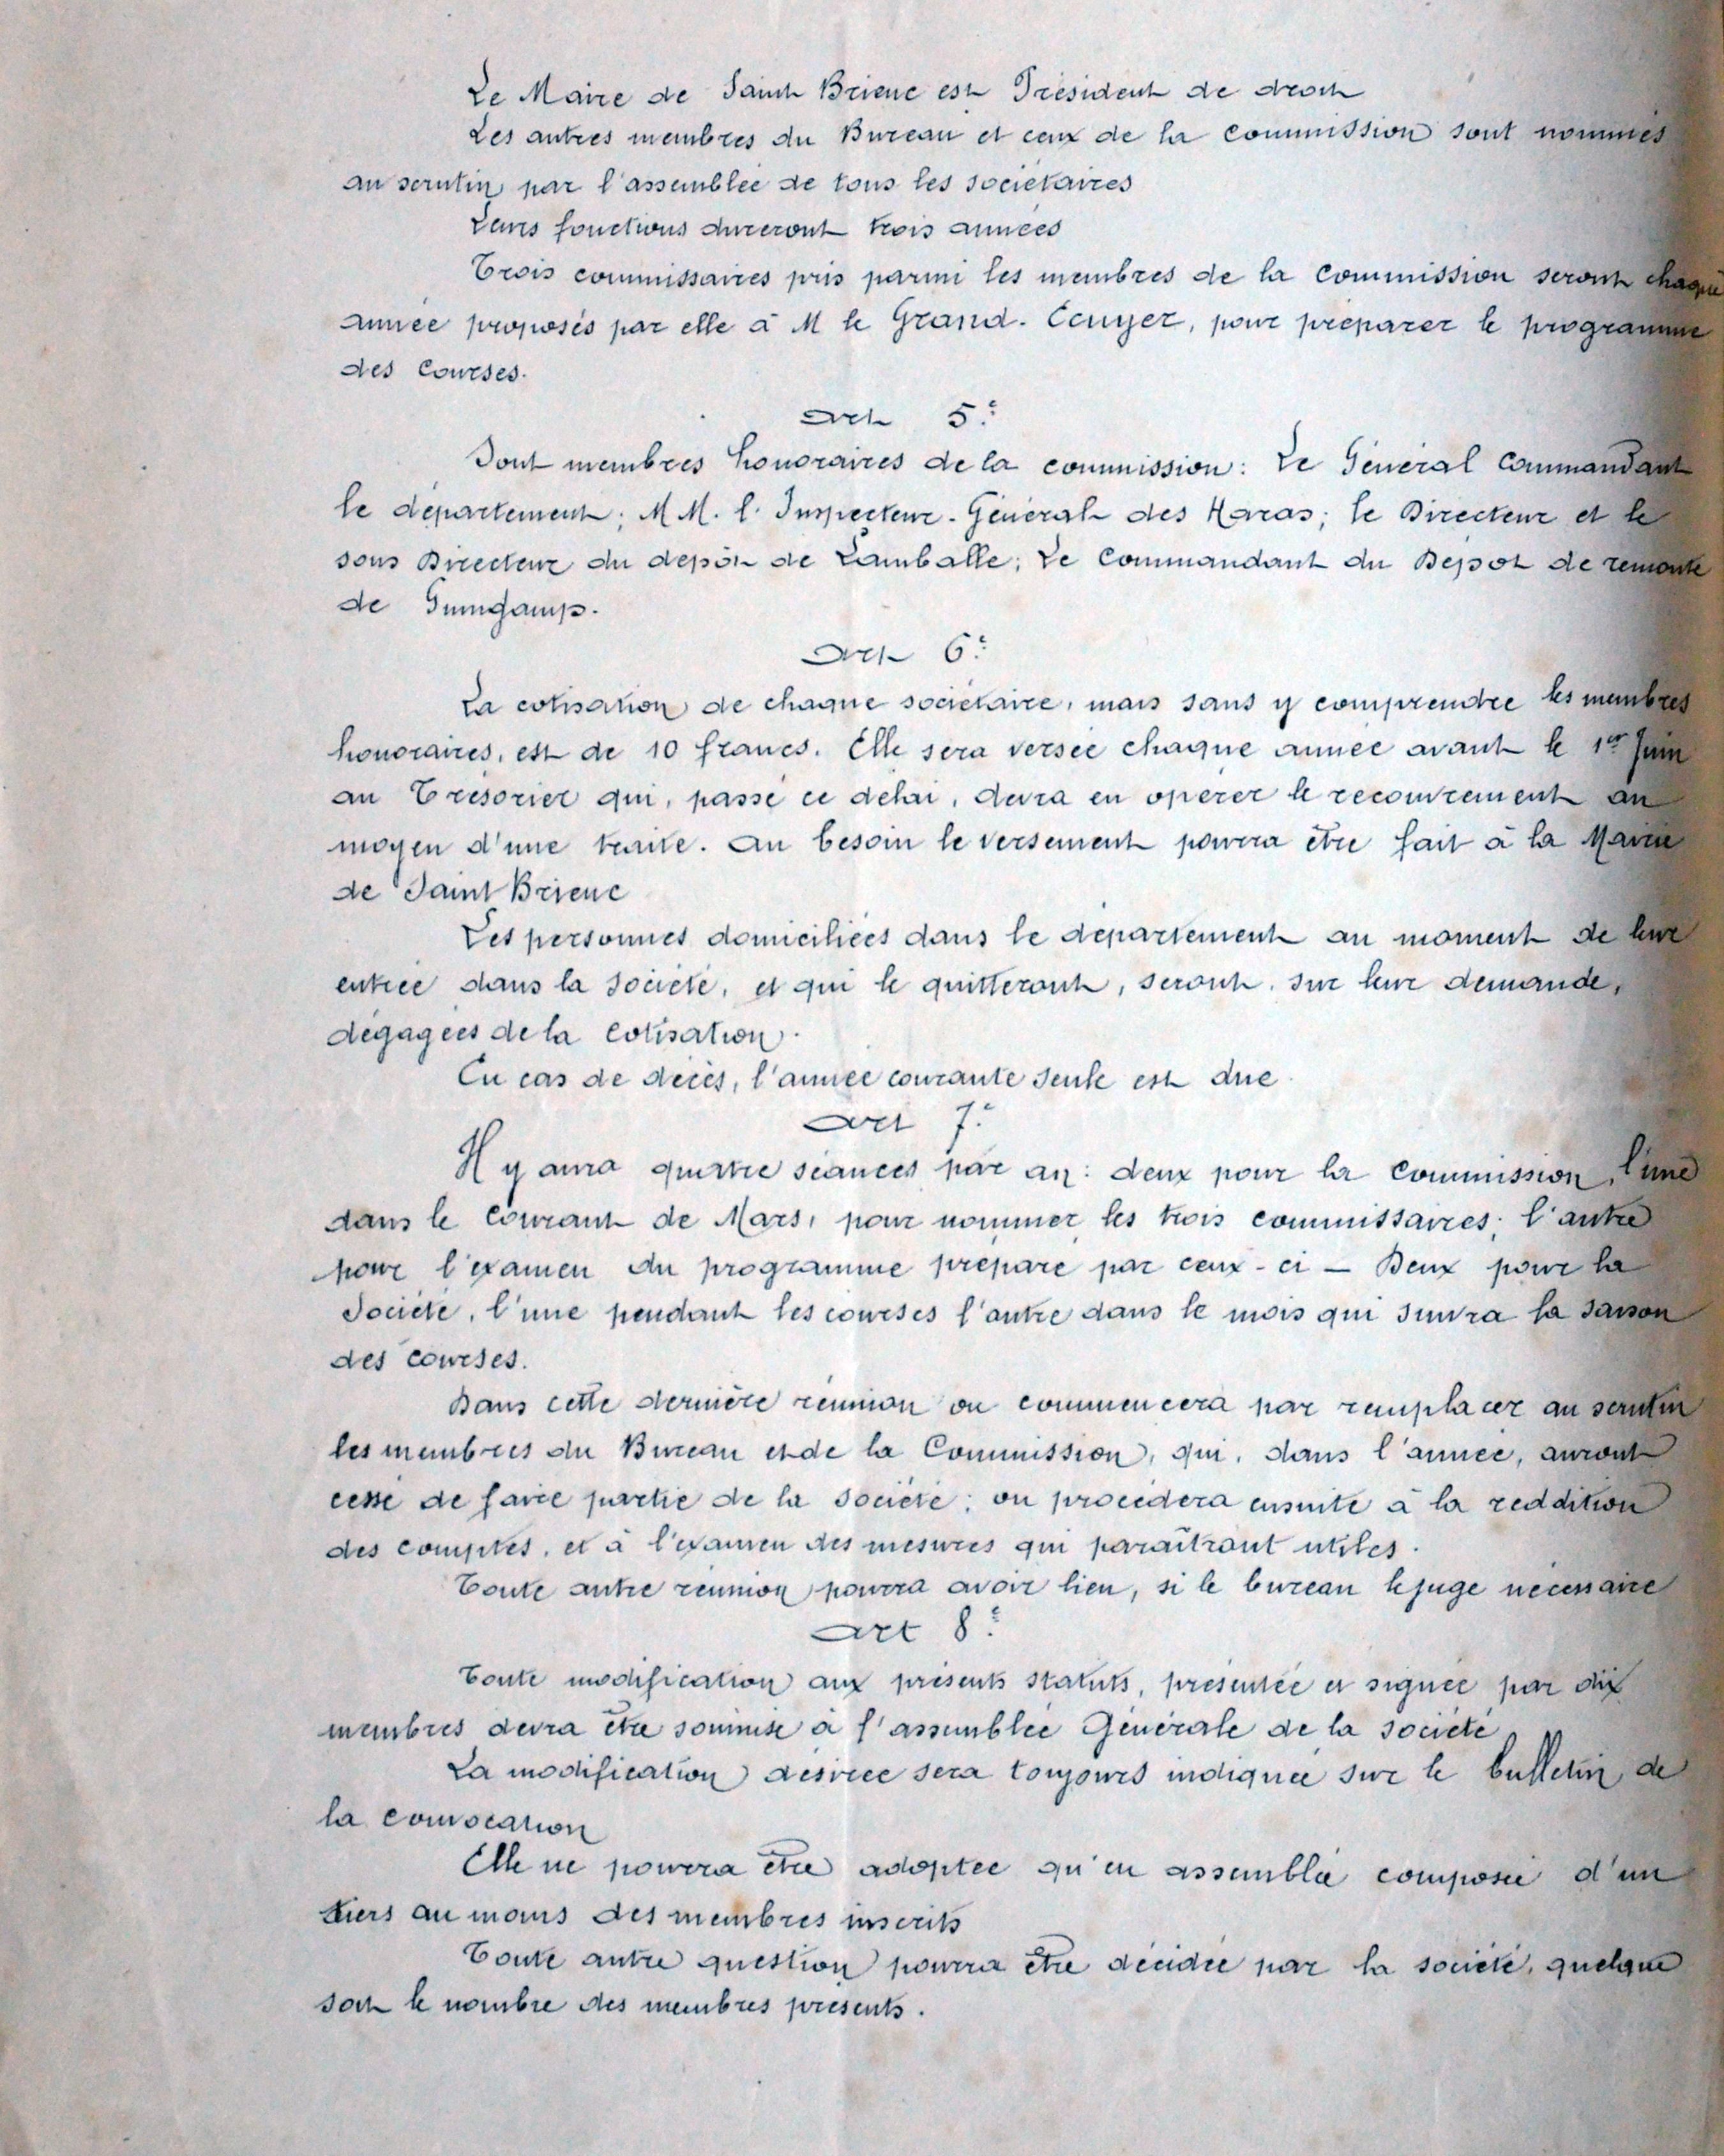 Le Maire de Saint Brieuc est Président de droit
Les autres membres du Bureau et ceux de la Commission sont nommés
au scrutin par l'assemblée de tous les sociétaires
Leurs fonctions dureront trois années
Trois commissaires pris parmi les membres de la Commission seront chaque
année proposés par elle à M le Grand-Ecuyer, pour préparer le programme
des Courses.
Art 5e
Sont membres honoraires de la commission : Le Général Commandant
le département ; M M. l'Inspecteur-Général des Haras ; le Directeur et le
sous Directeur du dépôt de Lamballe ; Le Commandant du Dépot de remonte
de Guingamp.
Art 6e
La cotisation de chaque sociétaire, mais sans y comprendre les membres
honoraires, est de 10 francs. Elle sera versée chaque année avant le 1er Juin
au Trésorier qui, passé ce délai, devra en opérer le recouvrement au
moyen d'une traite. Au besoin le versement pourra être fait à la Mairie
de Saint Brieuc
Les personnes domiciliées dans le département au moment de leur
entrée dans la Société, et qui le quitteront, seront, sur leur demande,
dégagées de la Cotisation.
En cas de décès, l'année courante seule est due.
Art 7e
Il y aura quatre séances par an : deux pour la Commission, l'une
dans le Courant de Mars, pour nommer les trois commissaires ; l'autre
pour l'examen du programme préparé par ceux-ci — Deux pour la
Société, l'une pendant les courses l'autre dans le mois qui suivra la saison
des courses.
Dans cette dernière réunion on commencera par remplacer au scrutin
les membres du Bureau et de la Commission, qui, dans l'année, auront
cessé de faire partie de la Société ; on procédera ensuite à la reddition
des comptes, et à l'examen des mesures qui paraîtront utiles.
Toute autre réunion pourra avoir lieu, si le bureau le juge nécessaire
Art 8e
Toute modification aux présents statuts, présentée et signée par dix
membres devra être soumise à l'assemblée Générale de la société
La modification désirée sera toujours indiquée sur le bulletin de
la convocation
Elle ne pourra être adoptée qu'en assemblée composée d'un
tiers au moins des membres inscrits
Toute autre question pourra être décidée par la société, quelque
soit le nombre des membres présents.